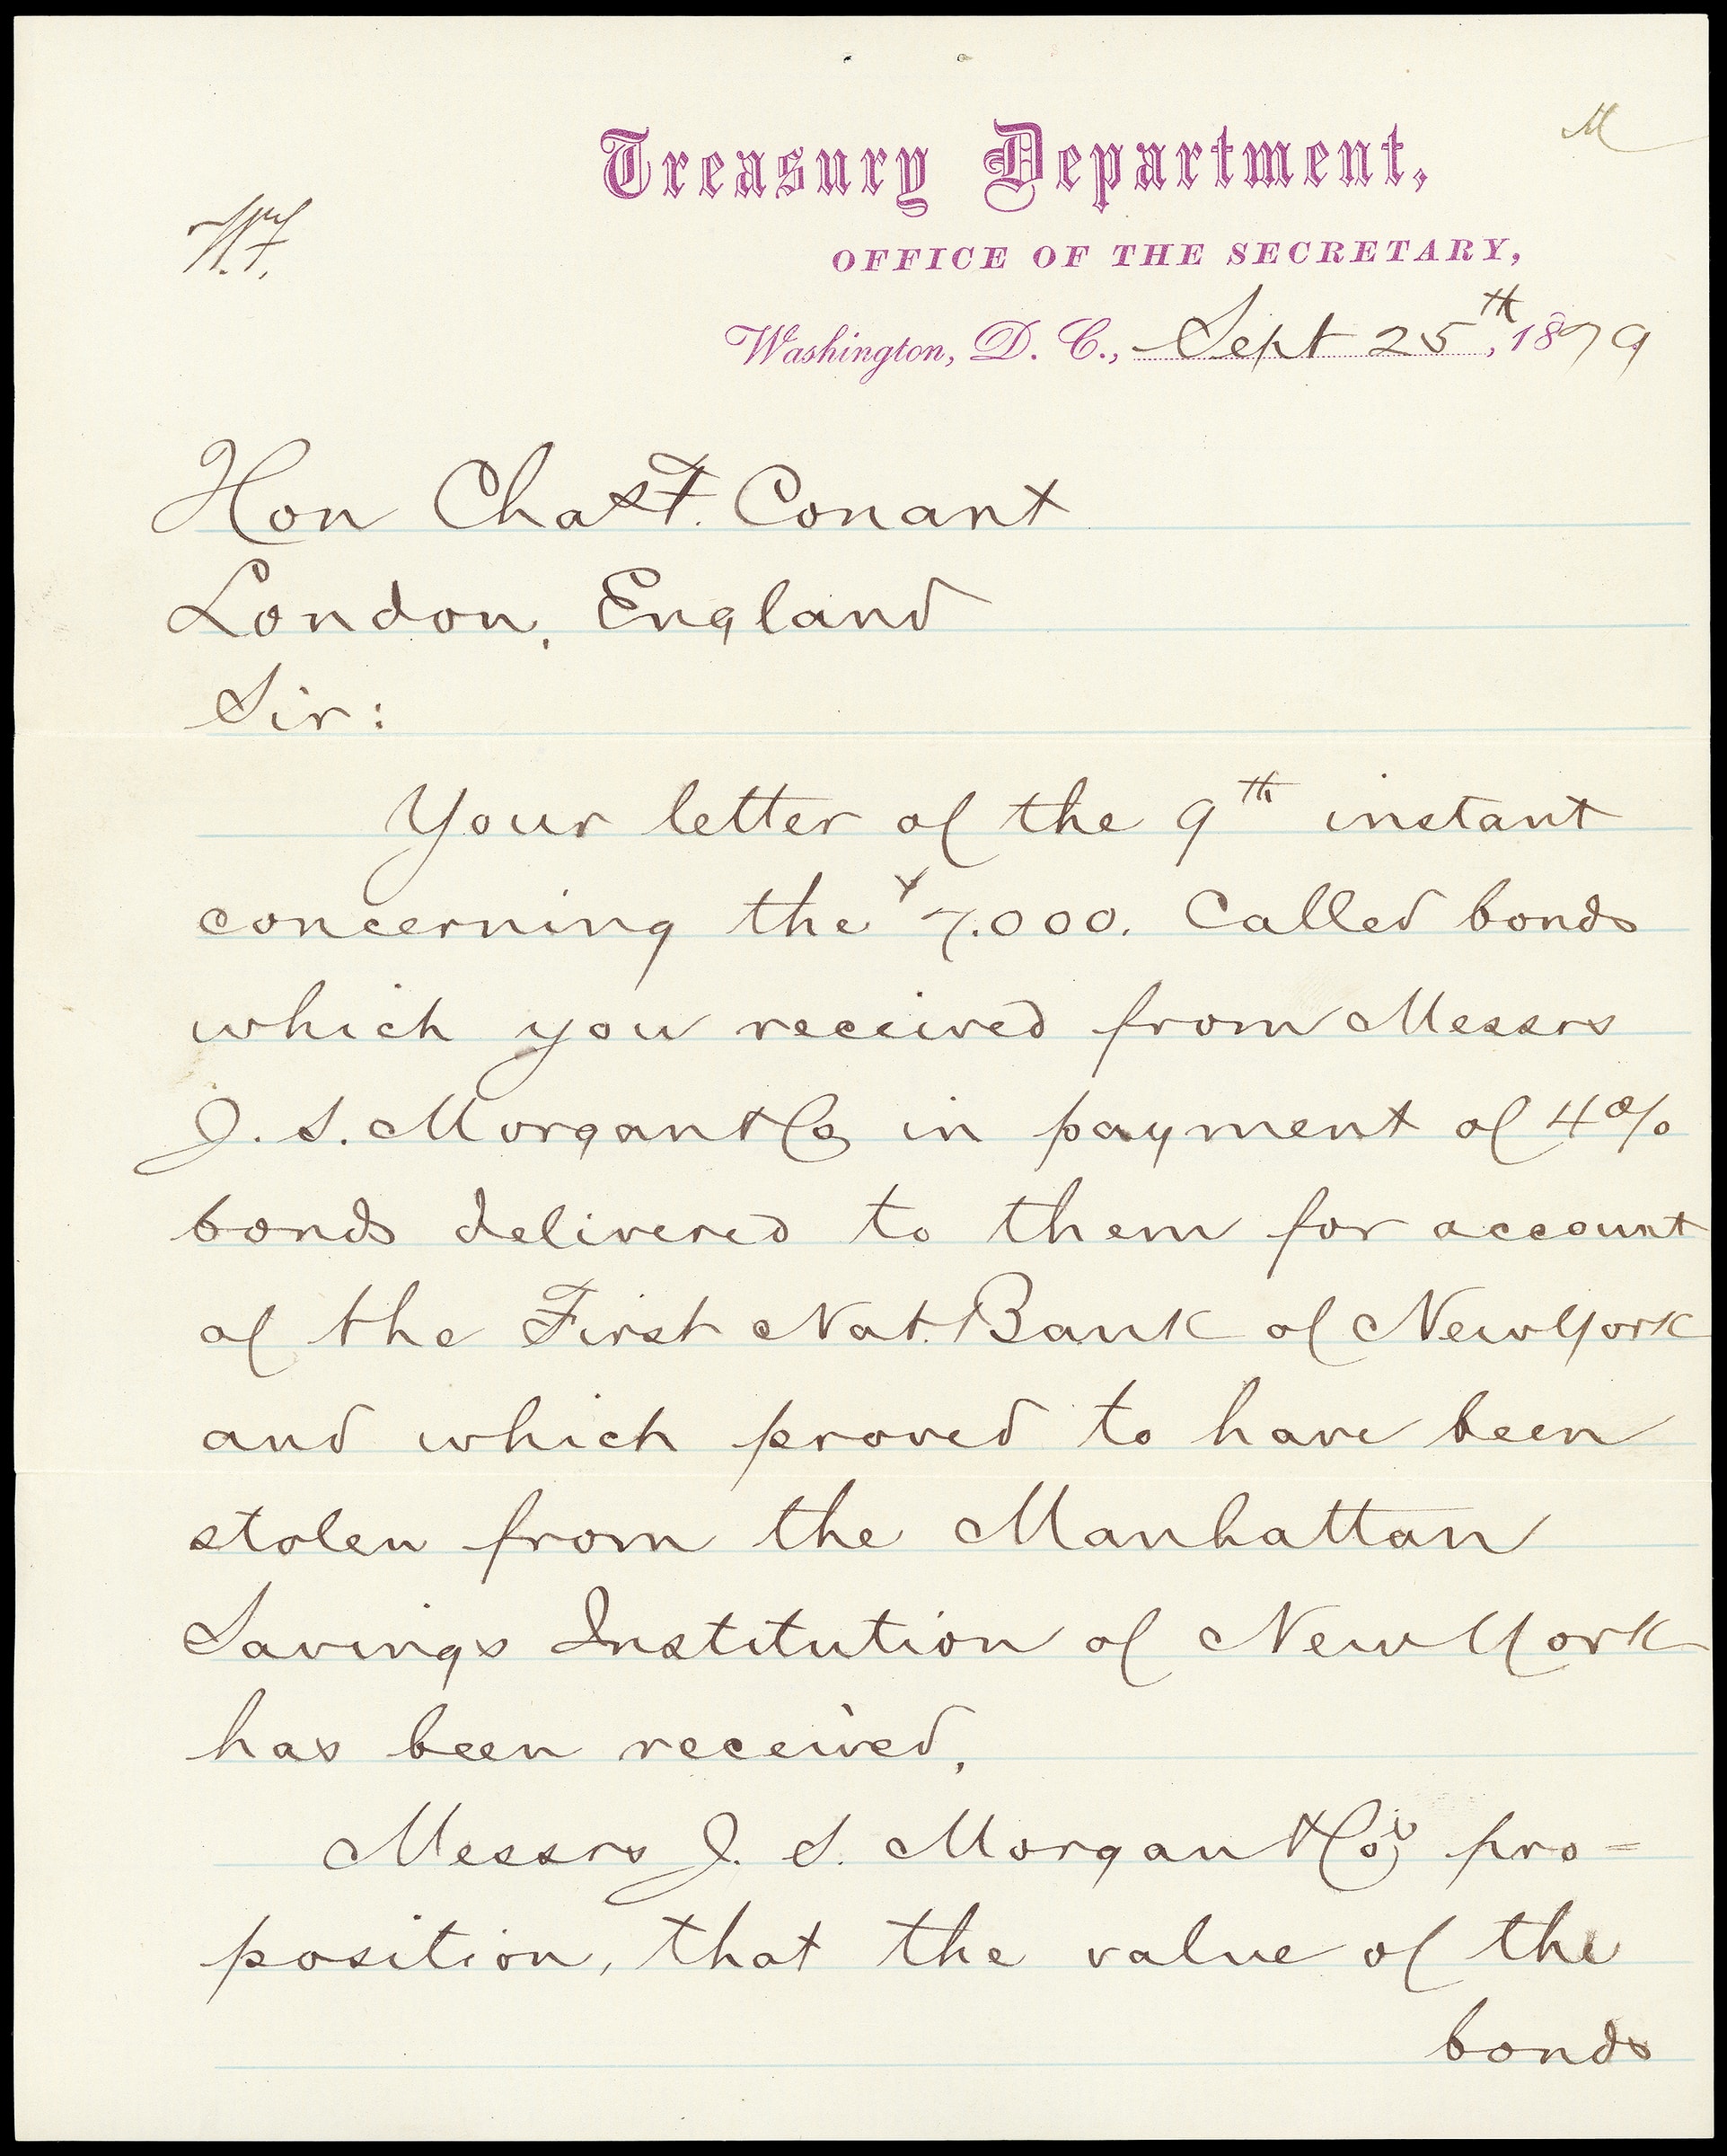 M
W.F.
Treasury Department,
OFFICE OF THE SECRETARY,
Washington, D. C., Sept 25th, 1879
Hon Chas F. Conant
London, England
Sir:
Your letter of the 9th instant
concerning the $7.000. Called bonds
which you received from Messrs
J. S. Morgan & Co in payment of 4%
bonds delivered to them for account
of the First Nat. Bank of New York
and which proved to have been
stolen from the Manhattan
Savings Institution of New York
has been received.
Messrs J. S. Morgan & Co's pro=
position, that the value of the
bonds